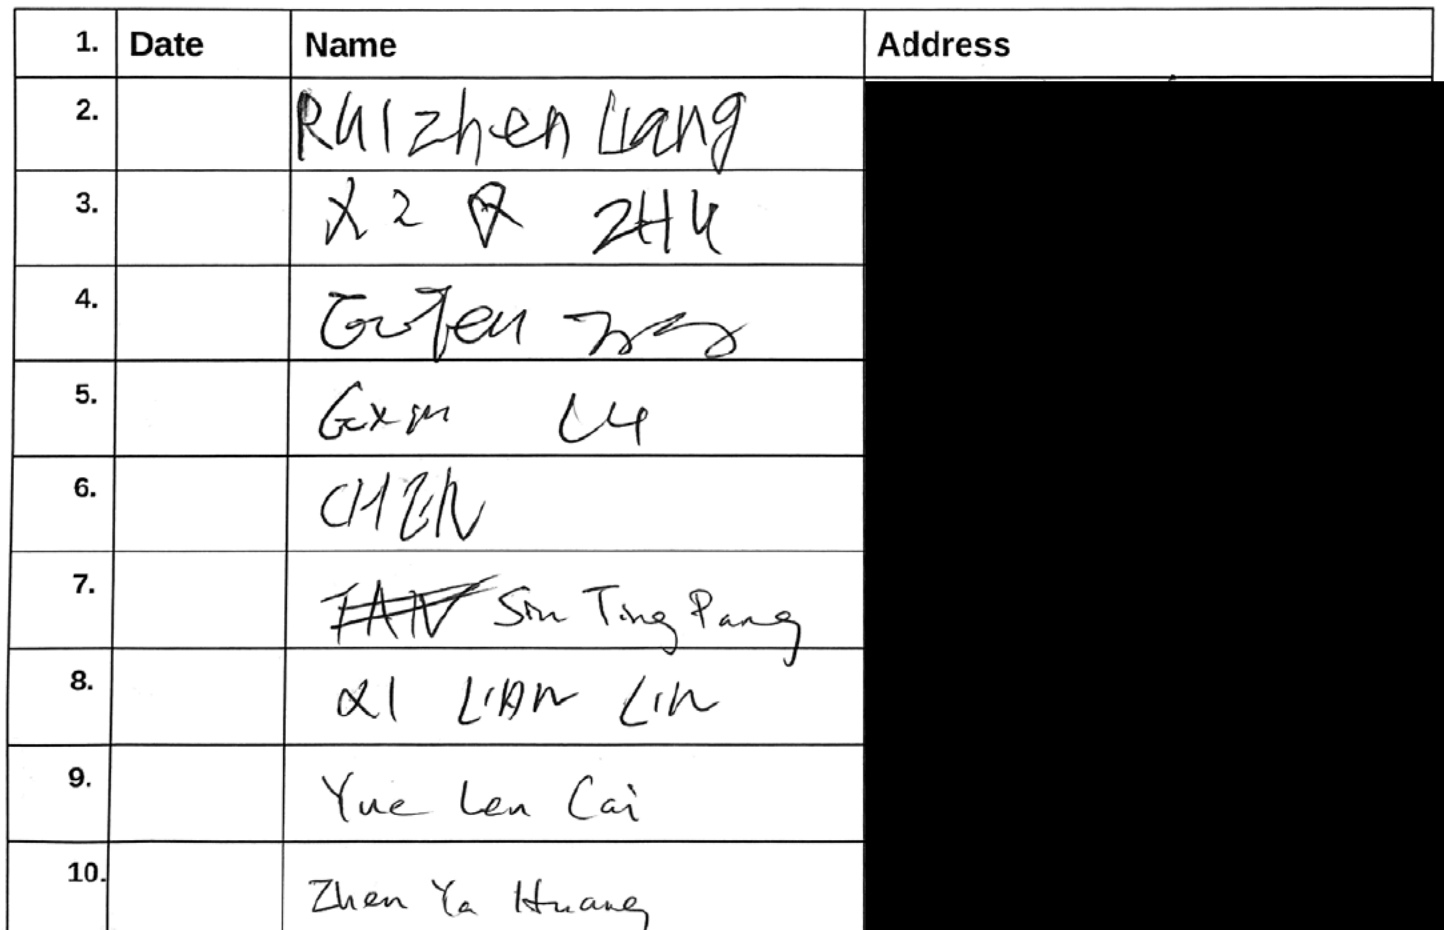 1. Date Name Address
2. Ruizhen Liang
3. ZHU
4.
5. Gxin
6. CHEN
7. Sin Ting Pang
8. QI LIAN LIN
9. Yue Len Cai
10. Zhen Ya Huang